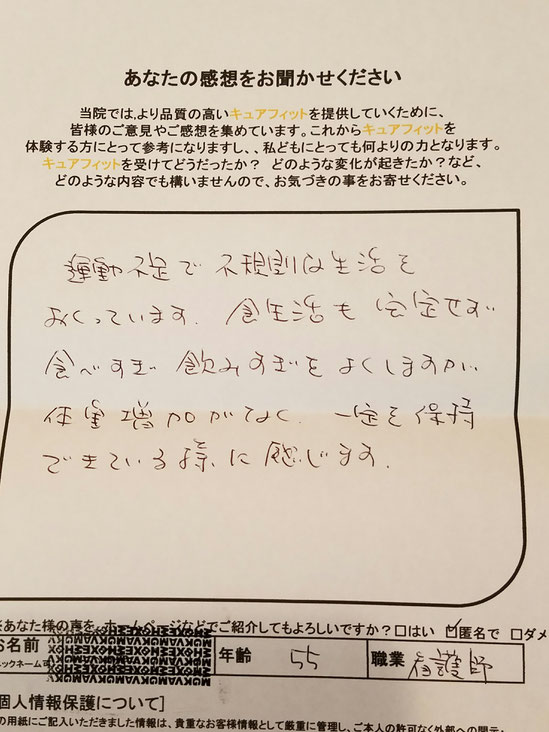 あなたの感想をお聞かせください
当院では、より品質の高いキュアフィットを提供していくために、
皆様のご意見やご感想を集めています。これからキュアフィットを
体験する方にとって参考になりますし、、私どもにとっても何よりの力となります。
キュアフィットを受けてどうだったか？ どのような変化が起きたか？など、
どのような内容でも構いませんので、お気づきの事をお寄せください。
運動不足で不規則な生活を
おくっています。食生活も安定せず
食べすぎ 飲みすぎをよくしますが、
体重増加がなく、一定を保持
できている様に感じます。
※あなた様の声を、ホームページなどでご紹介してもよろしいですか？□はい ☑匿名で □ダメ
お名前 年齢 55 職業 看護師
ニックネーム可
個人情報保護について］
の用紙にご記入いただきました情報は、貴重なお客様情報として厳重に管理し、ご本人の許可なく外部への開示、